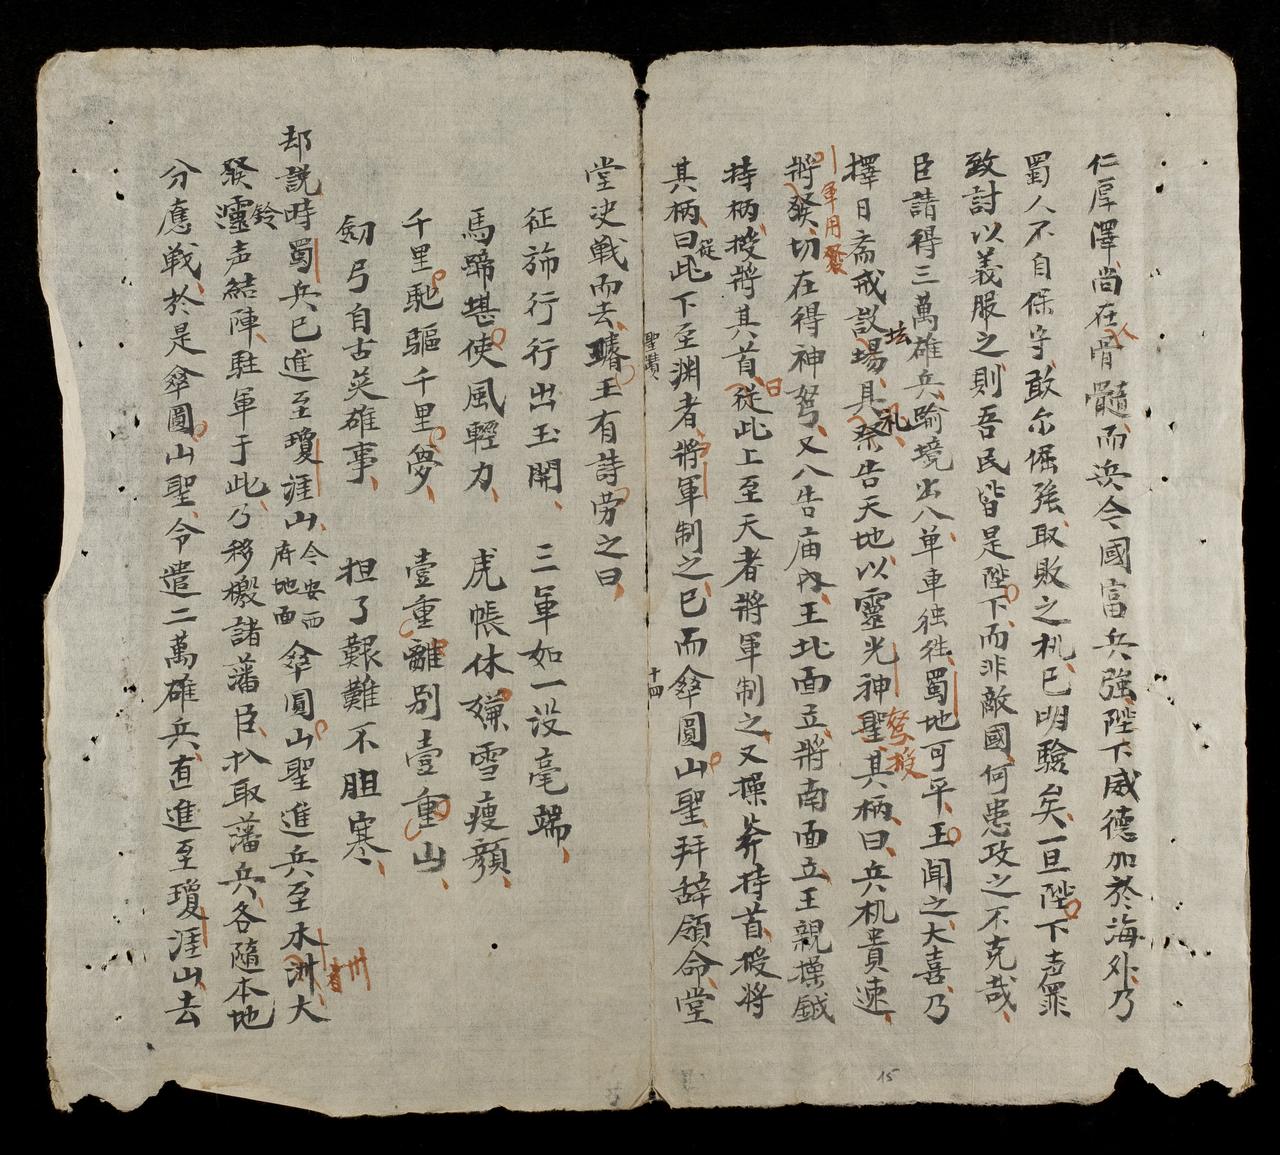 仁厚澤尚在人骨髓而況今國富兵強陛下威德加於海外乃
蜀人不自保守敢尔倔強取敗之机已明驗矣一旦陛下声罪
致討以義服之則吾民皆是陛下而非敵國何患攻之不克哉
臣請得三萬雄兵踰境出八单車徃徃蜀地可平王聞之大喜乃
擇日斎戒設場坛具祭礼告天地以靈光神弩授聖其柄曰兵机貴速
將發軍用發切在得神弩又八告庙內王北面立將南面立王親操鉞
持柄授將其首曰從此上至天者將軍制之又操斧持首授將
其柄曰從此下至渊者將軍制之已而傘圓山聖拜辞領命堂
堂决戰而去睿王有詩劳之曰
聖讃
十四
征斾行行出玉関 三軍如一没毫端
馬蹄堪使風輕力 虎帳休嫌雪瘦顏
千里馳驅千里夢 壹重離別壹重山
劒弓自古英雄事 担了艱難不胆寒
却說時蜀兵已進至瓊涯山今安西府地面傘圓山聖進兵至木洲大
發㚑鈴声結陣駐軍于此乃移檄諸藩臣収取藩兵各隨本地
分應戰於是傘圓山聖令遣二萬雄兵直進至瓊涯山去
州
15